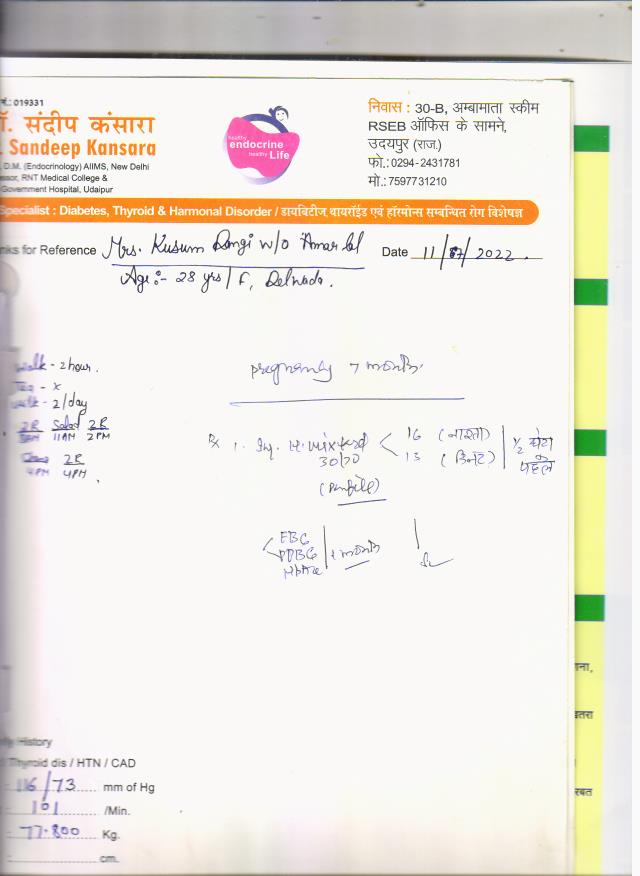 नं.: 019331
डॉ. संदीप कंसारा
. Sandeep Kansara
D.M. (Endocrinology) AIIMS, New Delhi
ssor, RNT Medical College &
Government Hospital, Udaipur
healthy
endocrine
healthy Life
निवास : 30-B, अम्बामाता स्कीम
RSEB ऑफिस के सामने,
उदयपुर (राज.)
फो.:0294-2431781
मो.:7597731210
Specialist : Diabetes, Thyroid & Harmonal Disorder / डायबिटीज थायरॉईड एवं हॉरमोन्स सम्बन्धित रोग विशेषज्ञ
nks for Reference Mrs. Kusum Dangi w/o Amar lal Date 11/07/2022.
Age:- 28 yrs/F, Delwada.
Walk - 2 hour.
Tea - x
Milk - 2/day
2R Salad 2R
11AM 2PM
Chana 2R
4PM
pregnancy 7 months
Rx 1. Inj. H. Mixtard 30/70 < 16 (नाश्ता)
13 (डिनर) | 1/2 घंटा पहले
(Penfile)
FBG
PPBG
HbA1c
month
ily History
Thyroid dis / HTN / CAD
116/73 mm of Hg
101 /Min.
77.800 Kg.
cm.